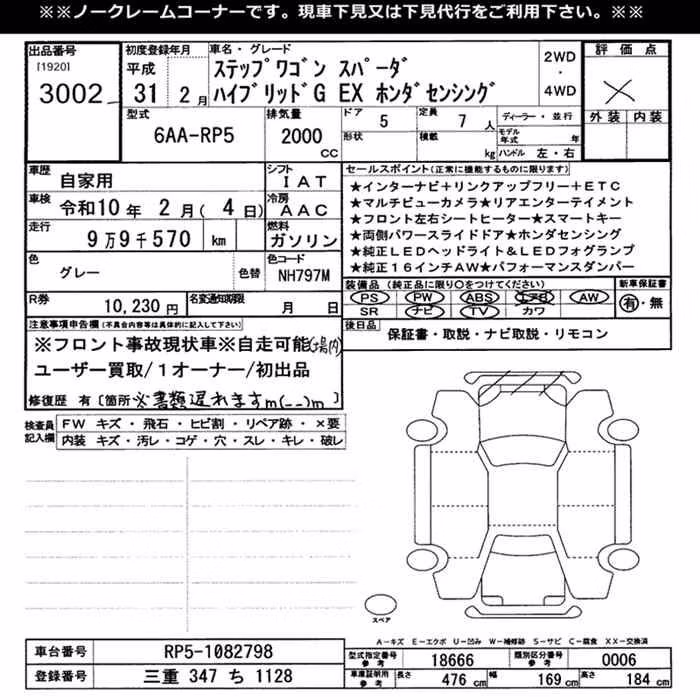 ※※ノークレームコーナーです。現車下見又は下見代行をご利用下さい。※※
出品番号
[1920]
3002
初度登録年月
平成
31 2月
車名・グレード
ステップワゴン スパーダ
ハイブリッドG EX ホンダセンシング
2WD
・
4WD
評価点
外装 内装
型式
6AA-RP5
排気量
2000
CC
ドア 5
形状
定員 7 人
積載 kg
ディーラー・並行
モデル年式 年
ハンドル 左・右
車歴
自家用
シフト
IAT
車検
令和10年 2月( 4日)
冷房
AAC
走行
9万9千570 km
燃料
ガソリン
色
グレー
色替
色コード
NH797M
R券
10,230円
名変通知期限
月 日
セールスポイント(正常に機能するものに限ります)
★インターナビ+リンクアップフリー+ETC
★マルチビューカメラ★リアエンターテイメント
★フロント左右シートヒーター★スマートキー
★両側パワースライドドア★ホンダセンシング
★純正LEDヘッドライト&LEDフォグランプ
★純正16インチAW★パフォーマンスダンパー
装備品(純正品に限り○をつけてください)
PS PW ABS エアB AW
SR ナビ TV カワ
新車保証書
有・無
後日品
保証書・取説・ナビ取説・リモコン
注意事項申告欄(不具合内容等は具体的に記入して下さい)
※フロント事故現状車※自走可能(場内)
ユーザー買取/1オーナー/初出品
修復歴 有[箇所 ※書類遅れますm(__)m]
検査員
記入欄
FW キズ・飛石・ヒビ割・リペア跡・×要
内装 キズ・汚レ・コゲ・穴・スレ・キレ・破レ
スペア
A-キズ E-エクボ U-凹み W-補修跡 S-サビ C-腐食 XX-交換済
車台番号
RP5-1082798
登録番号
三重 347 ち 1128
型式指定番号
参考
18666
類別区分番号
参考
0006
車庫証明用
参考
長さ 476 cm
幅 169 cm
高さ 184 cm